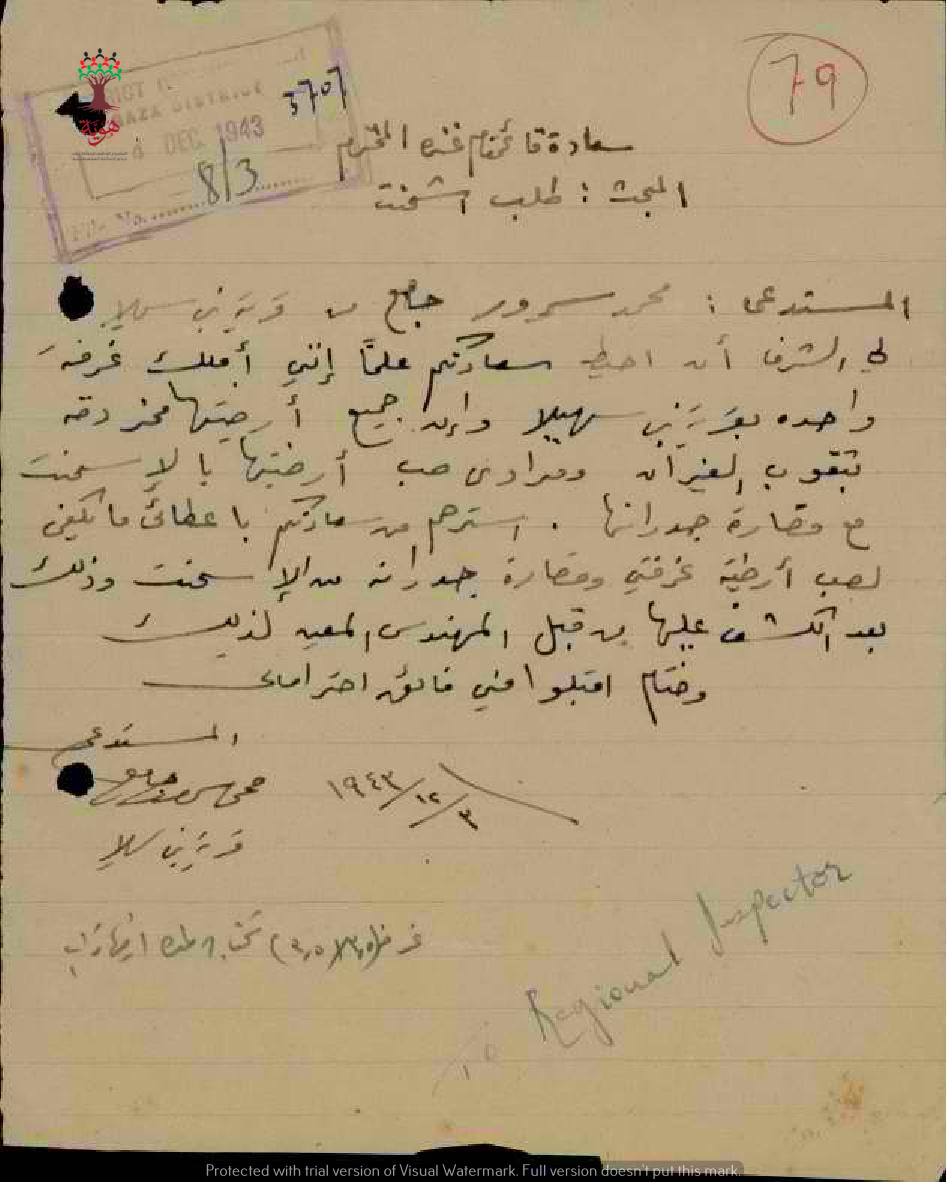 79
GAZA DISTRICT
8 DEC 1943
3707
8/3
File No.
هوية
سعادة قائمقام غزه المحترم
المبحث : طلب اسمنت
المستدعي : محمد سرور جامع من قرية بني سهيلا
لي الشرف أن احيط سعادتكم علمًا إنني أملك غرفة
واحده بقرية بني سهيلا وان جميع أرضيتها مخزوقه
بثقوب الفيران ومرادي صب أرضيتها بالاسمنت
مع قصارة جدرانها . استرحم من سعادتكم باعطائي ما يكفي
لصب أرضية غرفتي وقصارة جدرانه من الاسمنت وذلك
بعد الكشف عليها من قبل المهندس المعين لذلك
وختام اقبلوا مني فائق احترامي
المستدعي
١٩٤٣/١٢/٣
قرية بني سهيلا
To Regional Inspector
Protected with trial version of Visual Watermark. Full version doesn't put this mark.